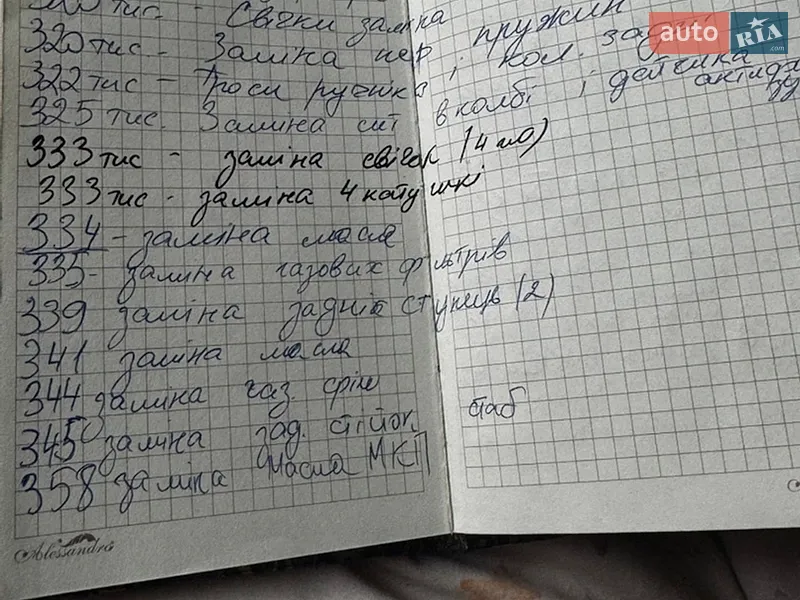 тис. - Свічки заміна
320 тис - Заміна пер пружин
322 тис - Троси ручніка і кол. задні
325 тис. Заміна сит в колбі і дейчика
333 тис - заміна свічок (4 шт)
333 тис - заміна 4 котушкі
334 - заміна масла
335 - заміна газових фільтрів
339 заміна задніх ступець (2)
341 заміна масла
344 заміна газ. філ
345 заміна зад. стійок
стаб
358 заміна масла МКП
Alessandro
auto RIA .com